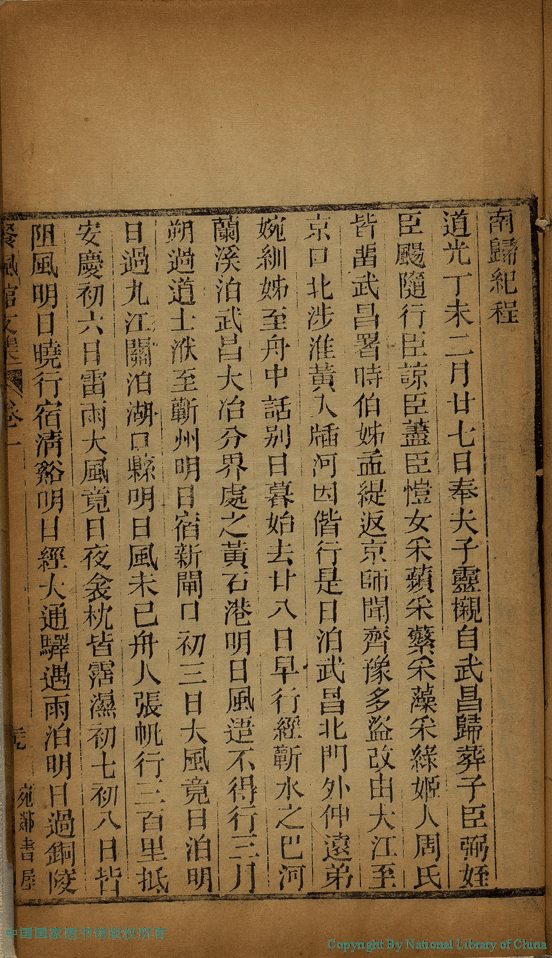 南歸紀程
道光丁未二月廿七日奉夫子靈櫬自武昌歸葬子臣弼姪
臣颺隨行臣諒臣藎臣愷女采蘋采蘩采藻采綠姬人周氏
皆畱武昌署時伯姊孟緹返京師聞齊豫多盜改由大江至
京口北涉淮黃入牐河因偕行是日泊武昌北門外仲遠弟
婉紃姊至舟中話別日暮始去廿八日早行經蘄水之巴河
蘭溪泊武昌大冶分界處之黃石港明日風逆不得行三月
朔過道士洑至蘄州明日宿新閘口初三日大風竟日泊明
日過九江關泊湖口縣明日風未已舟人張帆行三百里抵
安慶初六日雷雨大風竟日夜衾枕皆霑濕初七初八日皆
阻風明日曉行宿清谿明日經大通驛遇雨泊明日過銅陵
餐楓館文集 卷一
宛鄰書屋
中国国家图书馆版权所有
Copyright By National Library of China